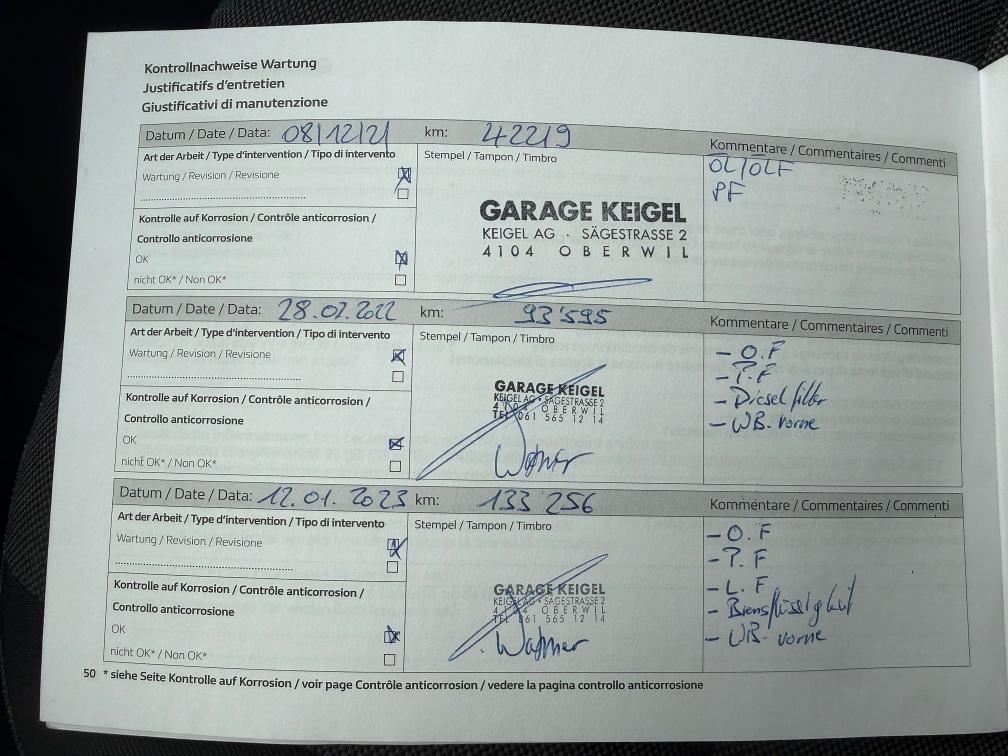 Kontrollnachweise Wartung
Justificatifs d'entretien
Giustificativi di manutenzione
Datum / Date / Data: 08/12/21 km: 42219
Kommentare / Commentaires / Commenti
Art der Arbeit / Type d'intervention / Tipo di intervento
Stempel / Tampon / Timbro
ÖL/ÖLF
Wartung / Revision / Revisione
PF
Kontrolle auf Korrosion / Contrôle anticorrosion /
Controllo anticorrosione
GARAGE KEIGEL
KEIGEL AG · SÄGESTRASSE 2
4104 OBERWIL
OK
nicht OK* / Non OK*
Datum / Date / Data: 28.07.2022 km: 93'595
Kommentare / Commentaires / Commenti
Art der Arbeit / Type d'intervention / Tipo di intervento
Stempel / Tampon / Timbro
- O.F
Wartung / Revision / Revisione
- P.F
- Dieselfilter
- WB. vorne
Kontrolle auf Korrosion / Contrôle anticorrosion /
Controllo anticorrosione
GARAGE KEIGEL
KEIGEL AG · SÄGESTRASSE 2
4104 OBERWIL
TEL 061 565 12 14
OK
nicht OK* / Non OK*
Datum / Date / Data: 12.01.2023 km: 133 256
Kommentare / Commentaires / Commenti
Art der Arbeit / Type d'intervention / Tipo di intervento
Stempel / Tampon / Timbro
- O.F
Wartung / Revision / Revisione
- P.F
- L.F
- Bremsflüssigkeit
- WB. vorne
Kontrolle auf Korrosion / Contrôle anticorrosion /
Controllo anticorrosione
GARAGE KEIGEL
KEIGEL AG · SÄGESTRASSE 2
4104 OBERWIL
TEL 061 565 12 14
OK
nicht OK* / Non OK*
50 * siehe Seite Kontrolle auf Korrosion / voir page Contrôle anticorrosion / vedere la pagina controllo anticorrosione